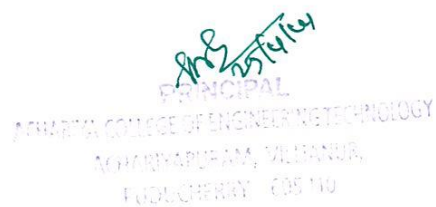 25/4/24
PRINCIPAL
ACHARIYA COLLEGE OF ENGINEERING TECHNOLOGY
ACHARIYAPURAM, VILLIANUR,
PUDUCHERRY 605 110